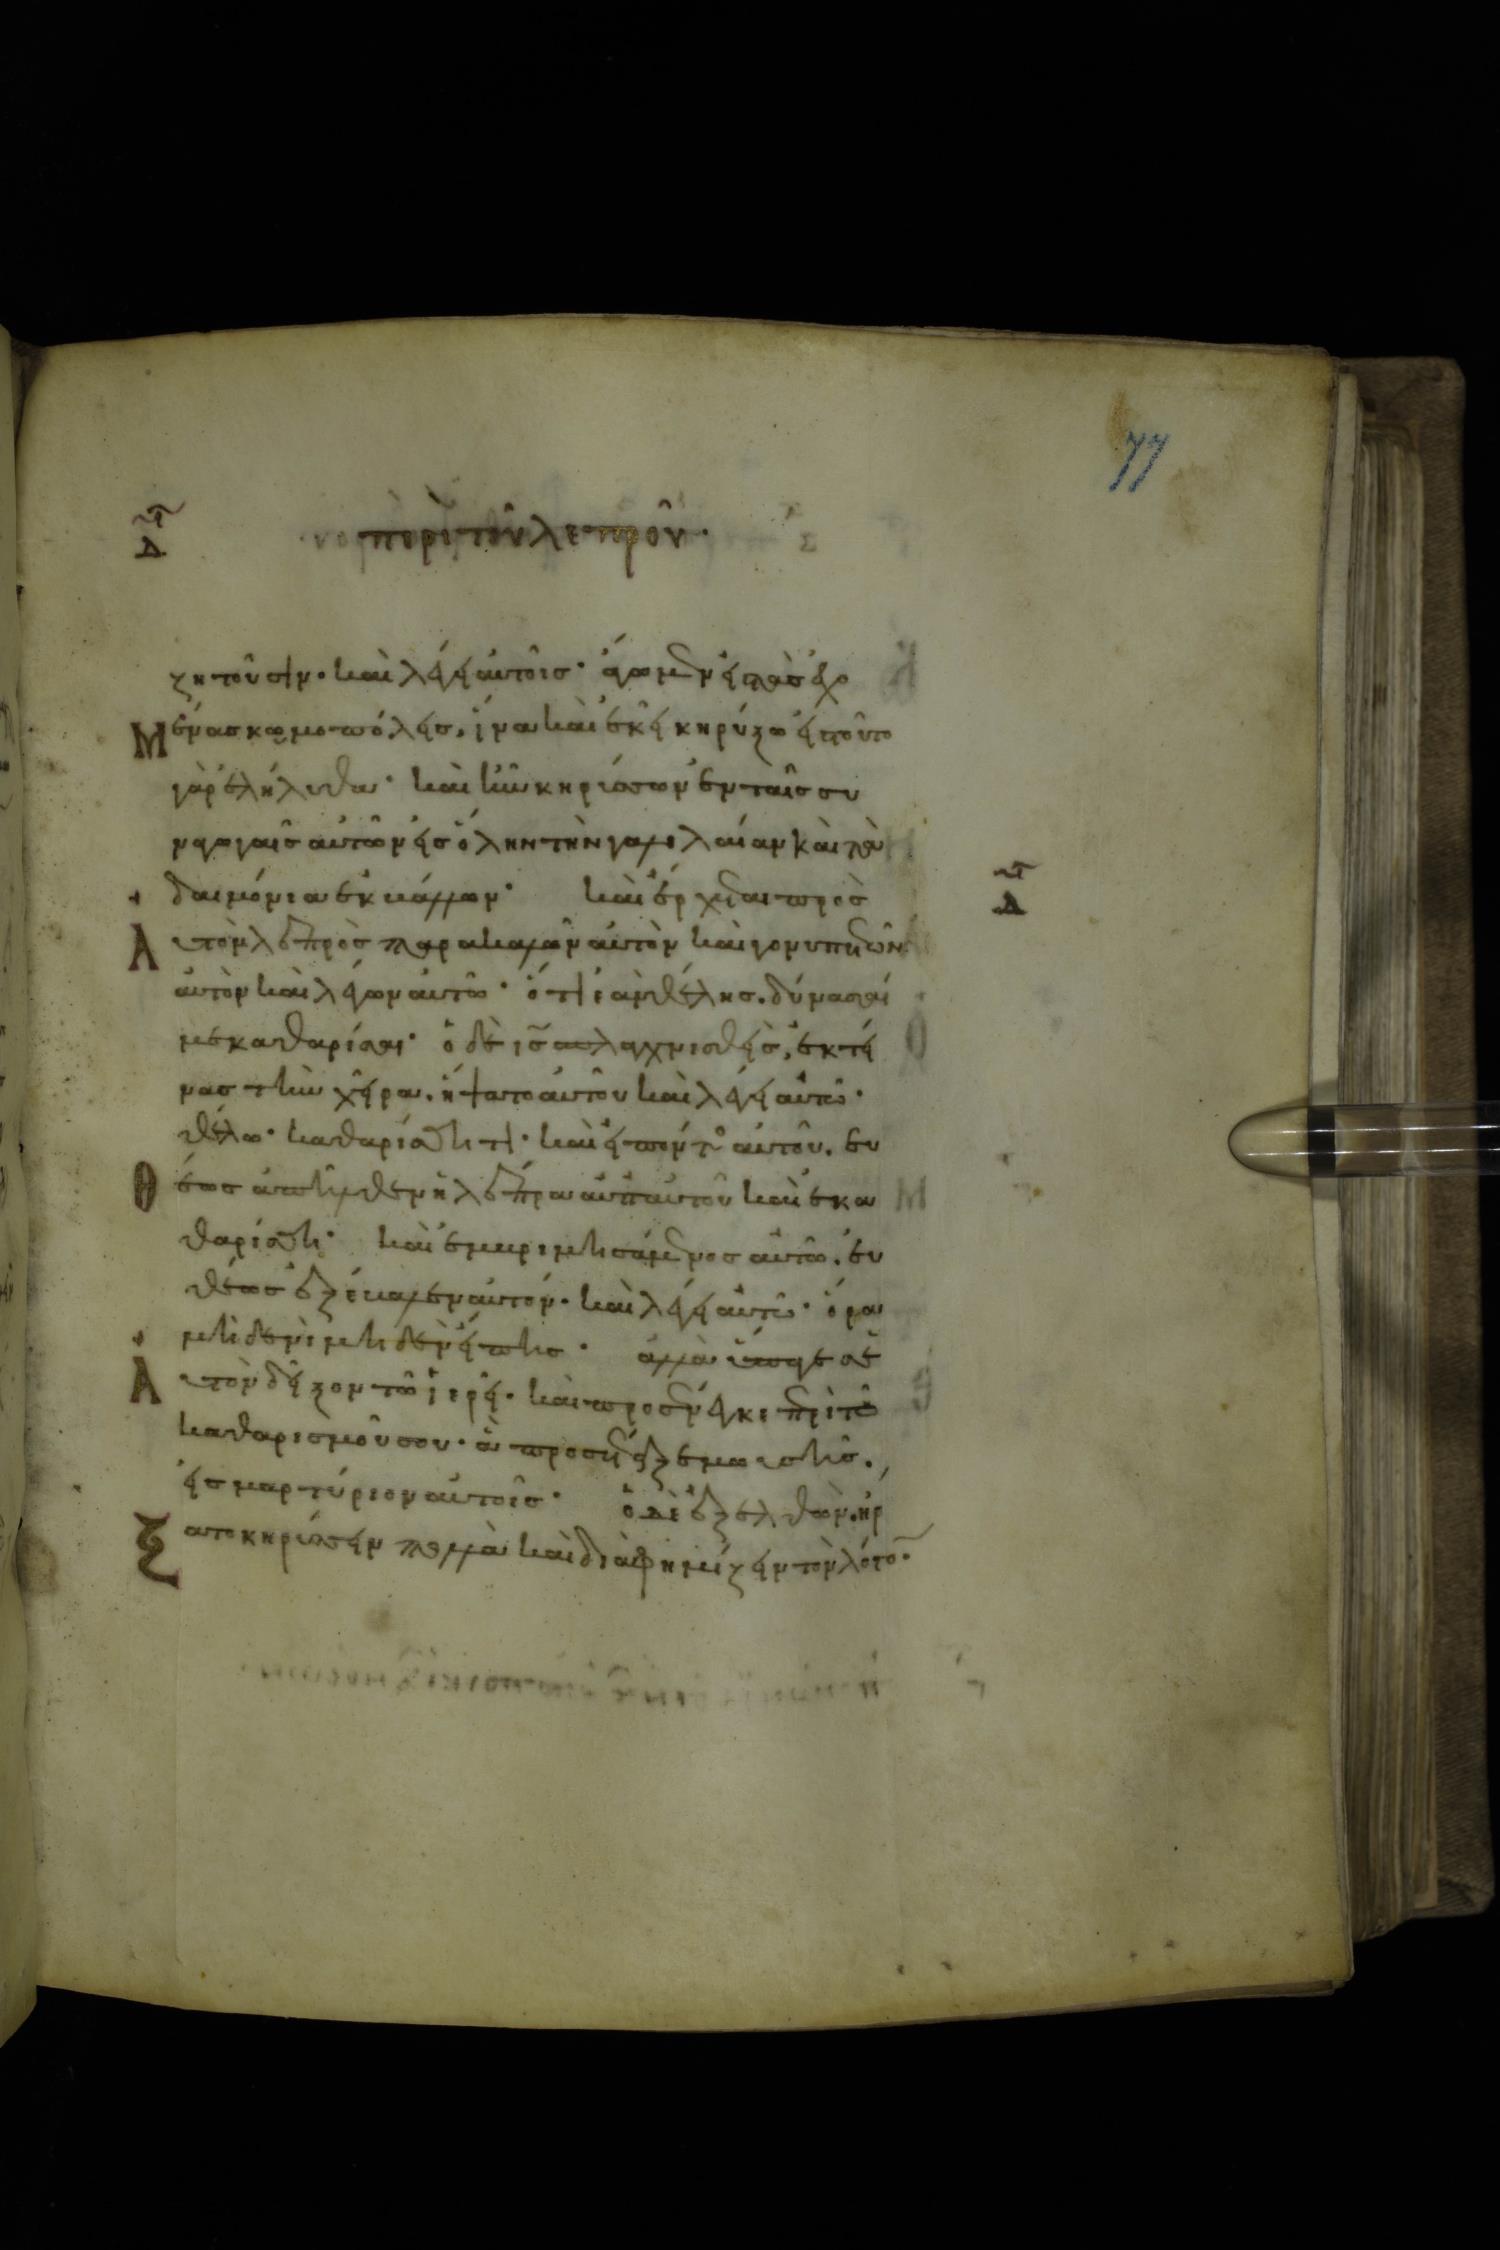 77
περὶ τοῦ λεπροῦ·
Δ
ζητοῦσιν· καὶ λέγει αὐτοῖς· ἄγωμεν εἰς τὰς ἐχο
μένας κωμοπόλεις, ἵνα καὶ ἐκεῖ κηρύξω εἰς τοῦτο
γὰρ ἐλήλυθα· καὶ ἦν κηρύσσων ἐν ταῖς συ
ναγωγαῖς αὐτῶν εἰς ὅλην τὴν γαλιλαίαν καὶ τὰ
δαιμόνια ἐκβάλλων· καὶ ἔρχεται πρὸς
Δ
αυτὸν λεπρὸς παρακαλῶν αὐτὸν καὶ γονυπετῶν
αὐτὸν καὶ λέγων αὐτῶ· ὅτι ἐὰν θέλης. δύνασαί
με καθαρίσαι· ὁ δὲ ις σπλαγχνισθεὶς, ἐκτεί
νας τὴν χεῖρα. ἥψατο αὐτοῦ καὶ λέγει αὐτῶ·
θέλω· καθαρίσθητι· καὶ εἰπόντος αὐτοῦ. ευ
θέως ἀπῆλθεν ἡ λέπρα ἀπ αὐτοῦ καὶ ἐκα
θαρίσθη· καὶ ἐμβριμησάμενος αὐτῶ. ευ
θέως ἐξέβαλεν αὐτόν· καὶ λέγει αὐτῶ· ὅρα
μηδενὶ μηδὲν εἴπης· ἀλλὰ ὕπαγε σε
Αυτὸν δεῖξον τῶ ἱερεῖ· καὶ προσένεγκε περὶ τοῦ
καθαρισμοῦ σου· ἃ προσέταξε μωυσῆς.
εἰς μαρτύριον αὐτοῖς· ὁ δὲ ἐξελθὼν. ἤρ
ξατο κηρύσσειν πολλὰ καὶ διαφημίζειν τὸν λόγον·